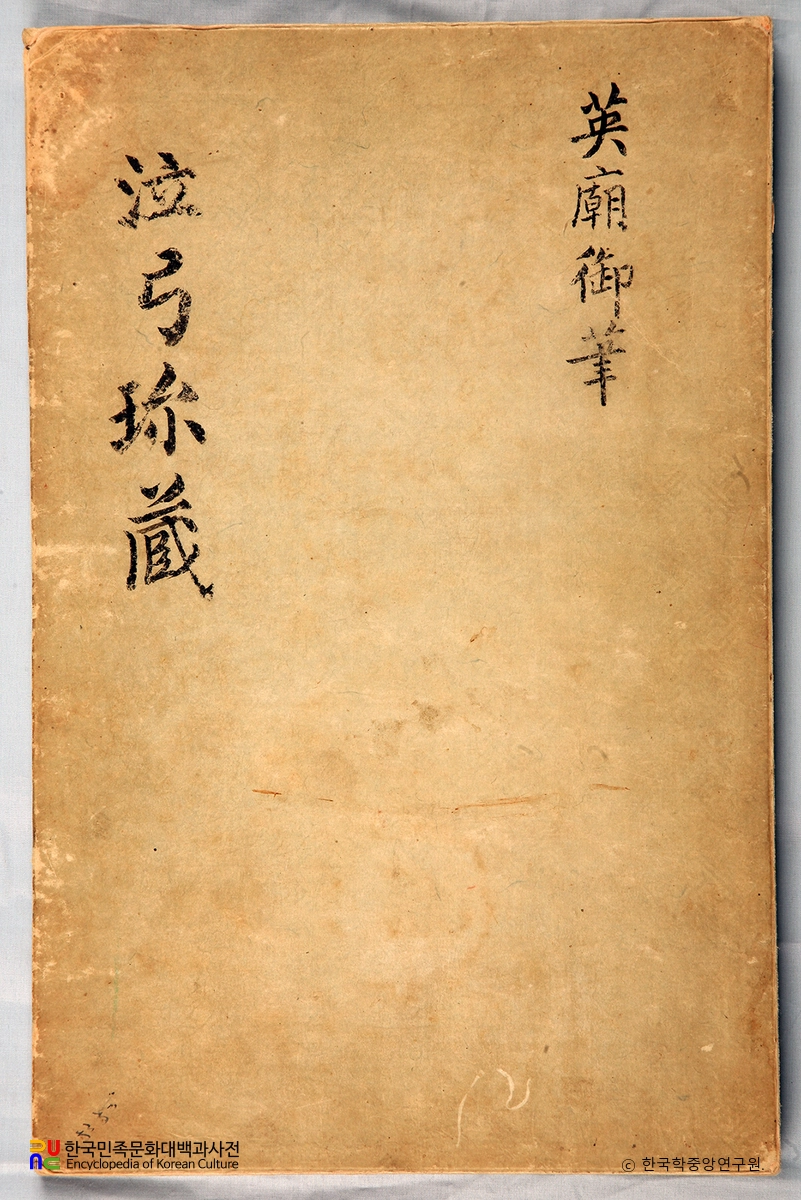 英廟御筆
泣弓珎蔵
한국민족문화대백과사전
Encyclopedia of Korean Culture
© 한국학중앙연구원